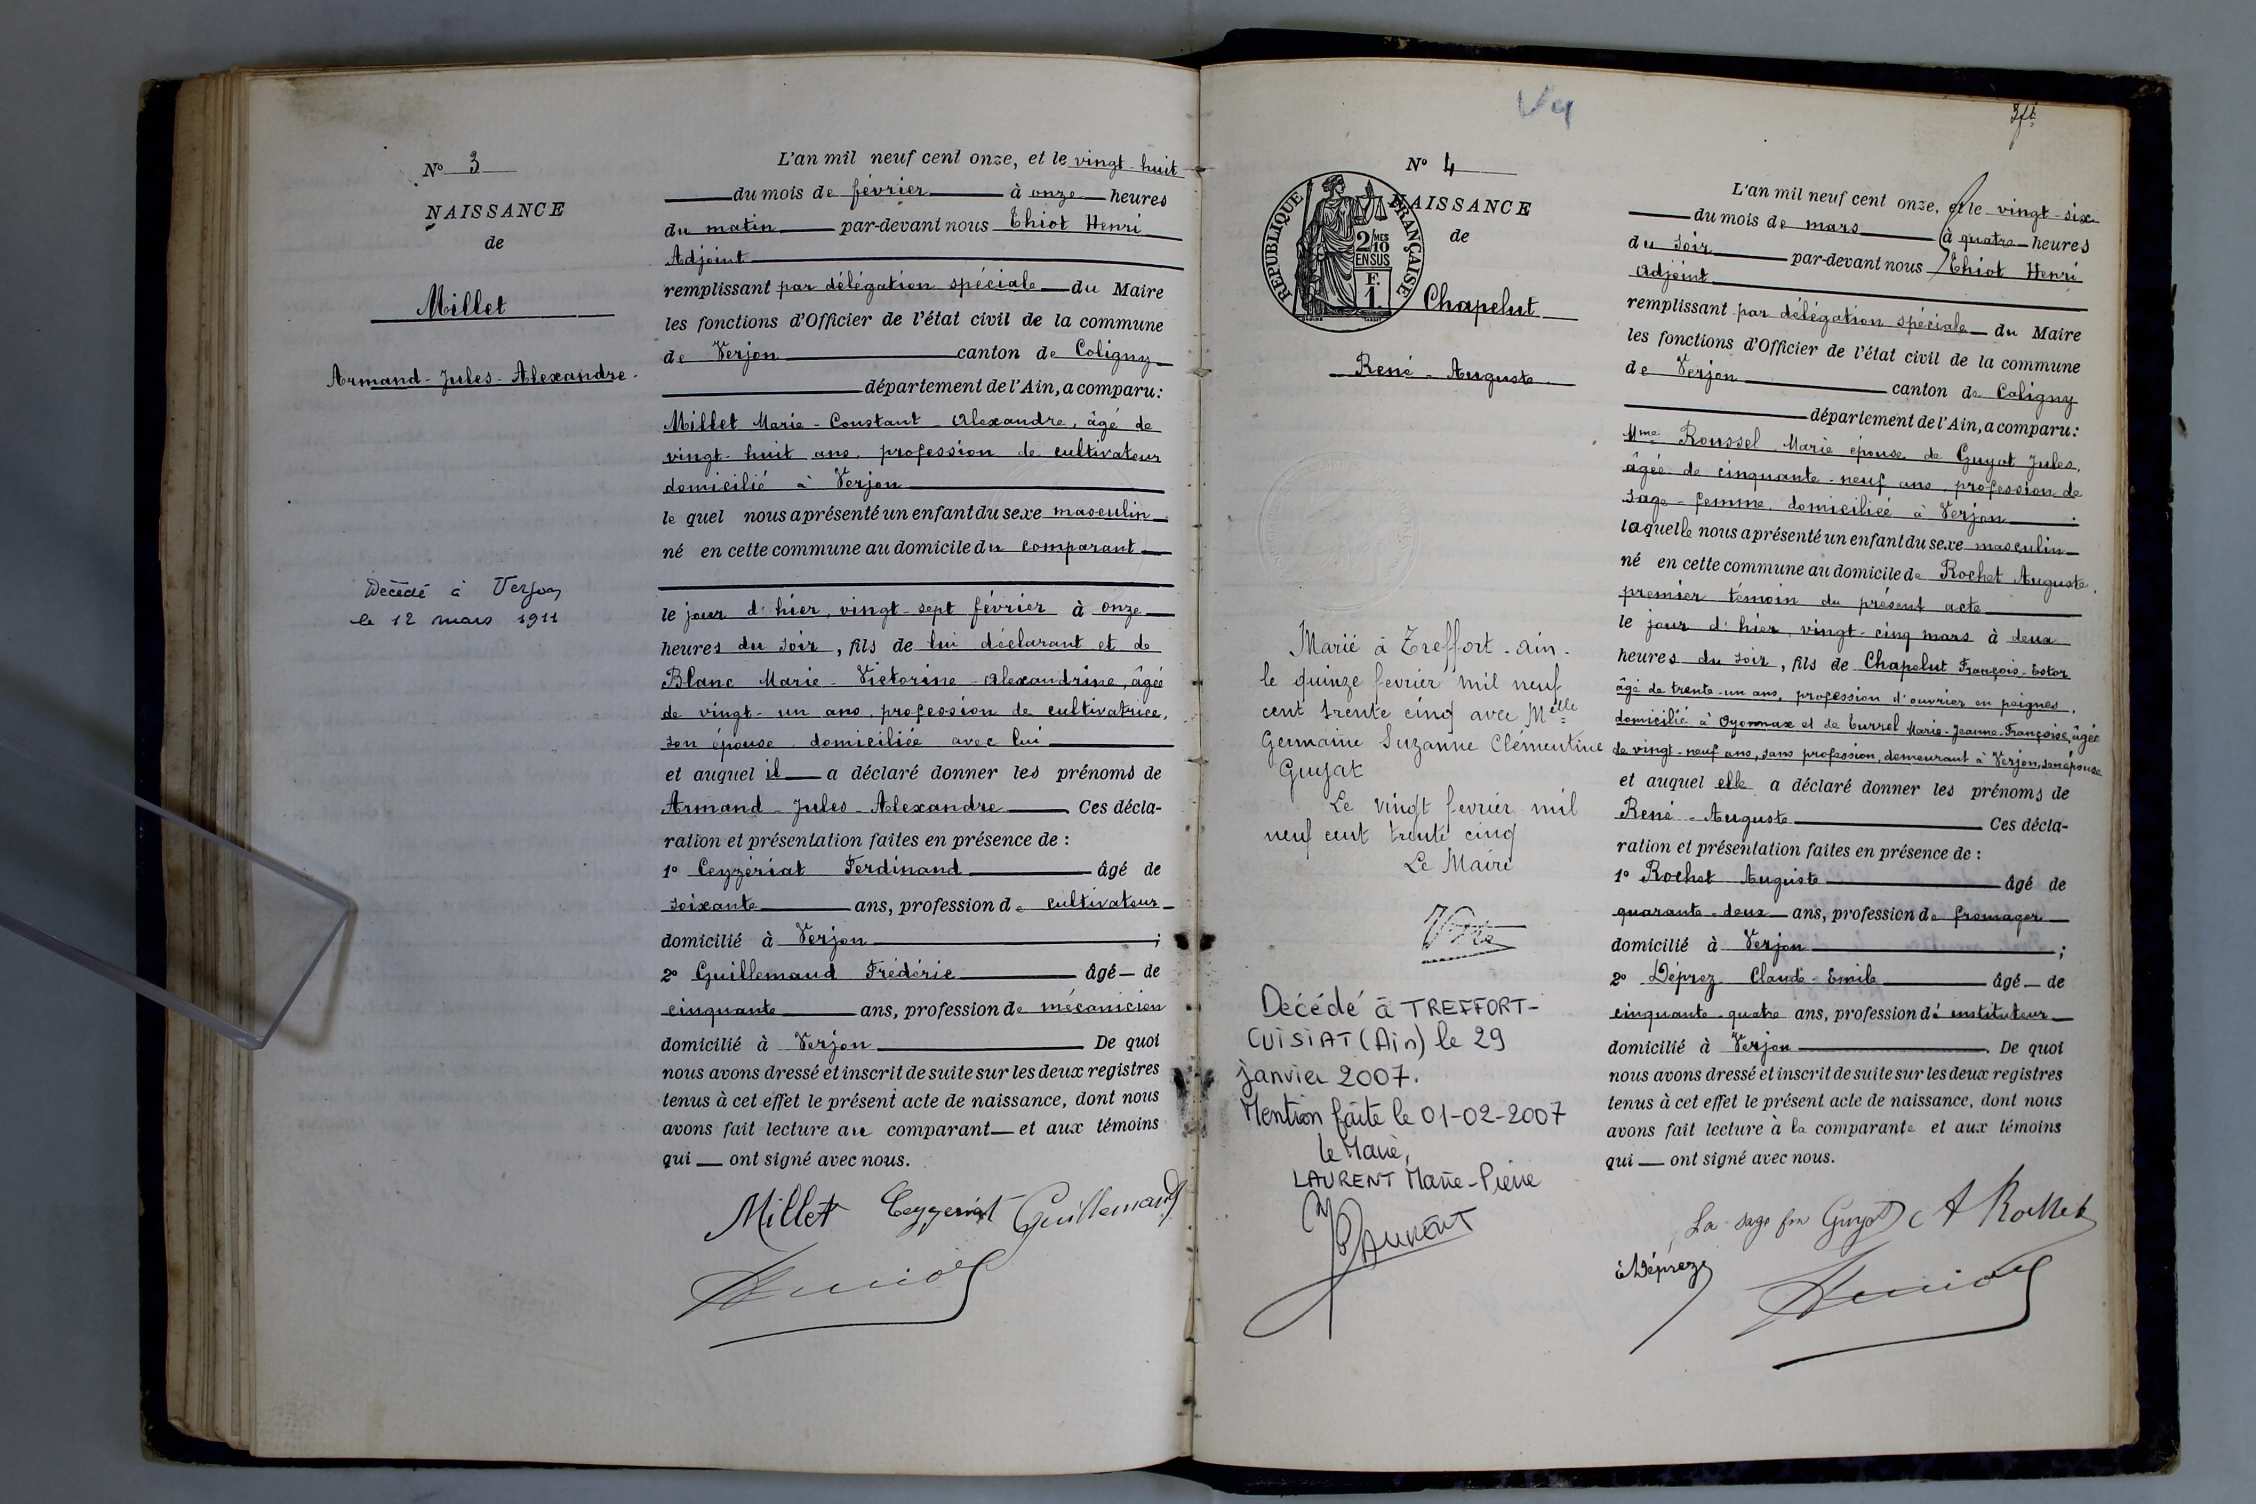 N° 3
NAISSANCE
de
Millet
Armand - Jules - Alexandre
Décédé à Verjon
le 12 mars 1911
L'an mil neuf cent onze, et le vingt-huit
du mois de février à onze heures
du matin par-devant nous Thiot Henri
Adjoint
remplissant par délégation spéciale du Maire
les fonctions d'Officier de l'état civil de la commune
de Verjon canton de Coligny
département de l'Ain, a comparu :
Millet Marie - Constant - Alexandre, âgé de
vingt-huit ans, profession de cultivateur
domicilié à Verjon
le quel nous a présenté un enfant du sexe masculin
né en cette commune au domicile du comparant
le jour d'hier, vingt-sept février à onze
heures du soir, fils de lui déclarant et de
Blanc Marie - Victorine - Alexandrine, âgée
de vingt-un ans, profession de cultivatrice,
son épouse domiciliée avec lui
et auquel il a déclaré donner les prénoms de
Armand - Jules - Alexandre Ces décla-
ration et présentation faites en présence de :
1° Ceyzériat Ferdinand âgé de
soixante ans, profession de cultivateur
domicilié à Verjon ;
2° Guillemaud Frédéric âgé de
cinquante ans, profession de mécanicien
domicilié à Verjon De quoi
nous avons dressé et inscrit de suite sur les deux registres
tenus à cet effet le présent acte de naissance, dont nous
avons fait lecture au comparant et aux témoins
qui ont signé avec nous.
Millet Ceyzeriat Guillemaud
V4
N° 4
NAISSANCE
de
RÉPUBLIQUE FRANÇAISE
2/10 MES
EN SUS
F.
1
Chapelut
René - Auguste
Marié à Treffort - ain -
le quinze fevrier mil neuf
cent trente cinq avec Melle
Germaine Suzanne Clémentine
Guyat
Le vingt fevrier mil
neuf cent trente cinq
Le Maire
Décédé à TREFFORT-
CUISIAT (Ain) le 29
janvier 2007.
Mention faite le 01-02-2007
le Maire,
LAURENT Marie-Pierre
LAURENT
L'an mil neuf cent onze, et le vingt-six
du mois de mars à quatre heures
du soir par-devant nous Thiot Henri
Adjoint
remplissant par délégation spéciale du Maire
les fonctions d'Officier de l'état civil de la commune
de Verjon canton de Coligny
département de l'Ain, a comparu :
Mme Roussel Marie épouse de Guyot Jules,
âgée de cinquante-neuf ans, profession de
sage-femme, domiciliée à Verjon
laquelle nous a présenté un enfant du sexe masculin
né en cette commune au domicile de Rochet Auguste,
premier témoin du présent acte
le jour d'hier, vingt-cinq mars à deux
heures du soir, fils de Chapelut François-Estor
âgé de trente-un ans, profession d'ouvrier en peignes,
domicilié à Oyonnax et de Curvel Marie-Jeanne-Françoise, âgée
de vingt-neuf ans, sans profession, demeurant à Verjon, son épouse
et auquel elle a déclaré donner les prénoms de
René - Auguste Ces décla-
ration et présentation faites en présence de :
1° Rochet Auguste âgé de
quarante-deux ans, profession de fromager
domicilié à Verjon ;
2° Déprez Claude-Emile âgé de
cinquante-quatre ans, profession d'instituteur
domicilié à Verjon De quoi
nous avons dressé et inscrit de suite sur les deux registres
tenus à cet effet le présent acte de naissance, dont nous
avons fait lecture à la comparante et aux témoins
qui ont signé avec nous.
La sage fm Guyot A Rochet
Déprez